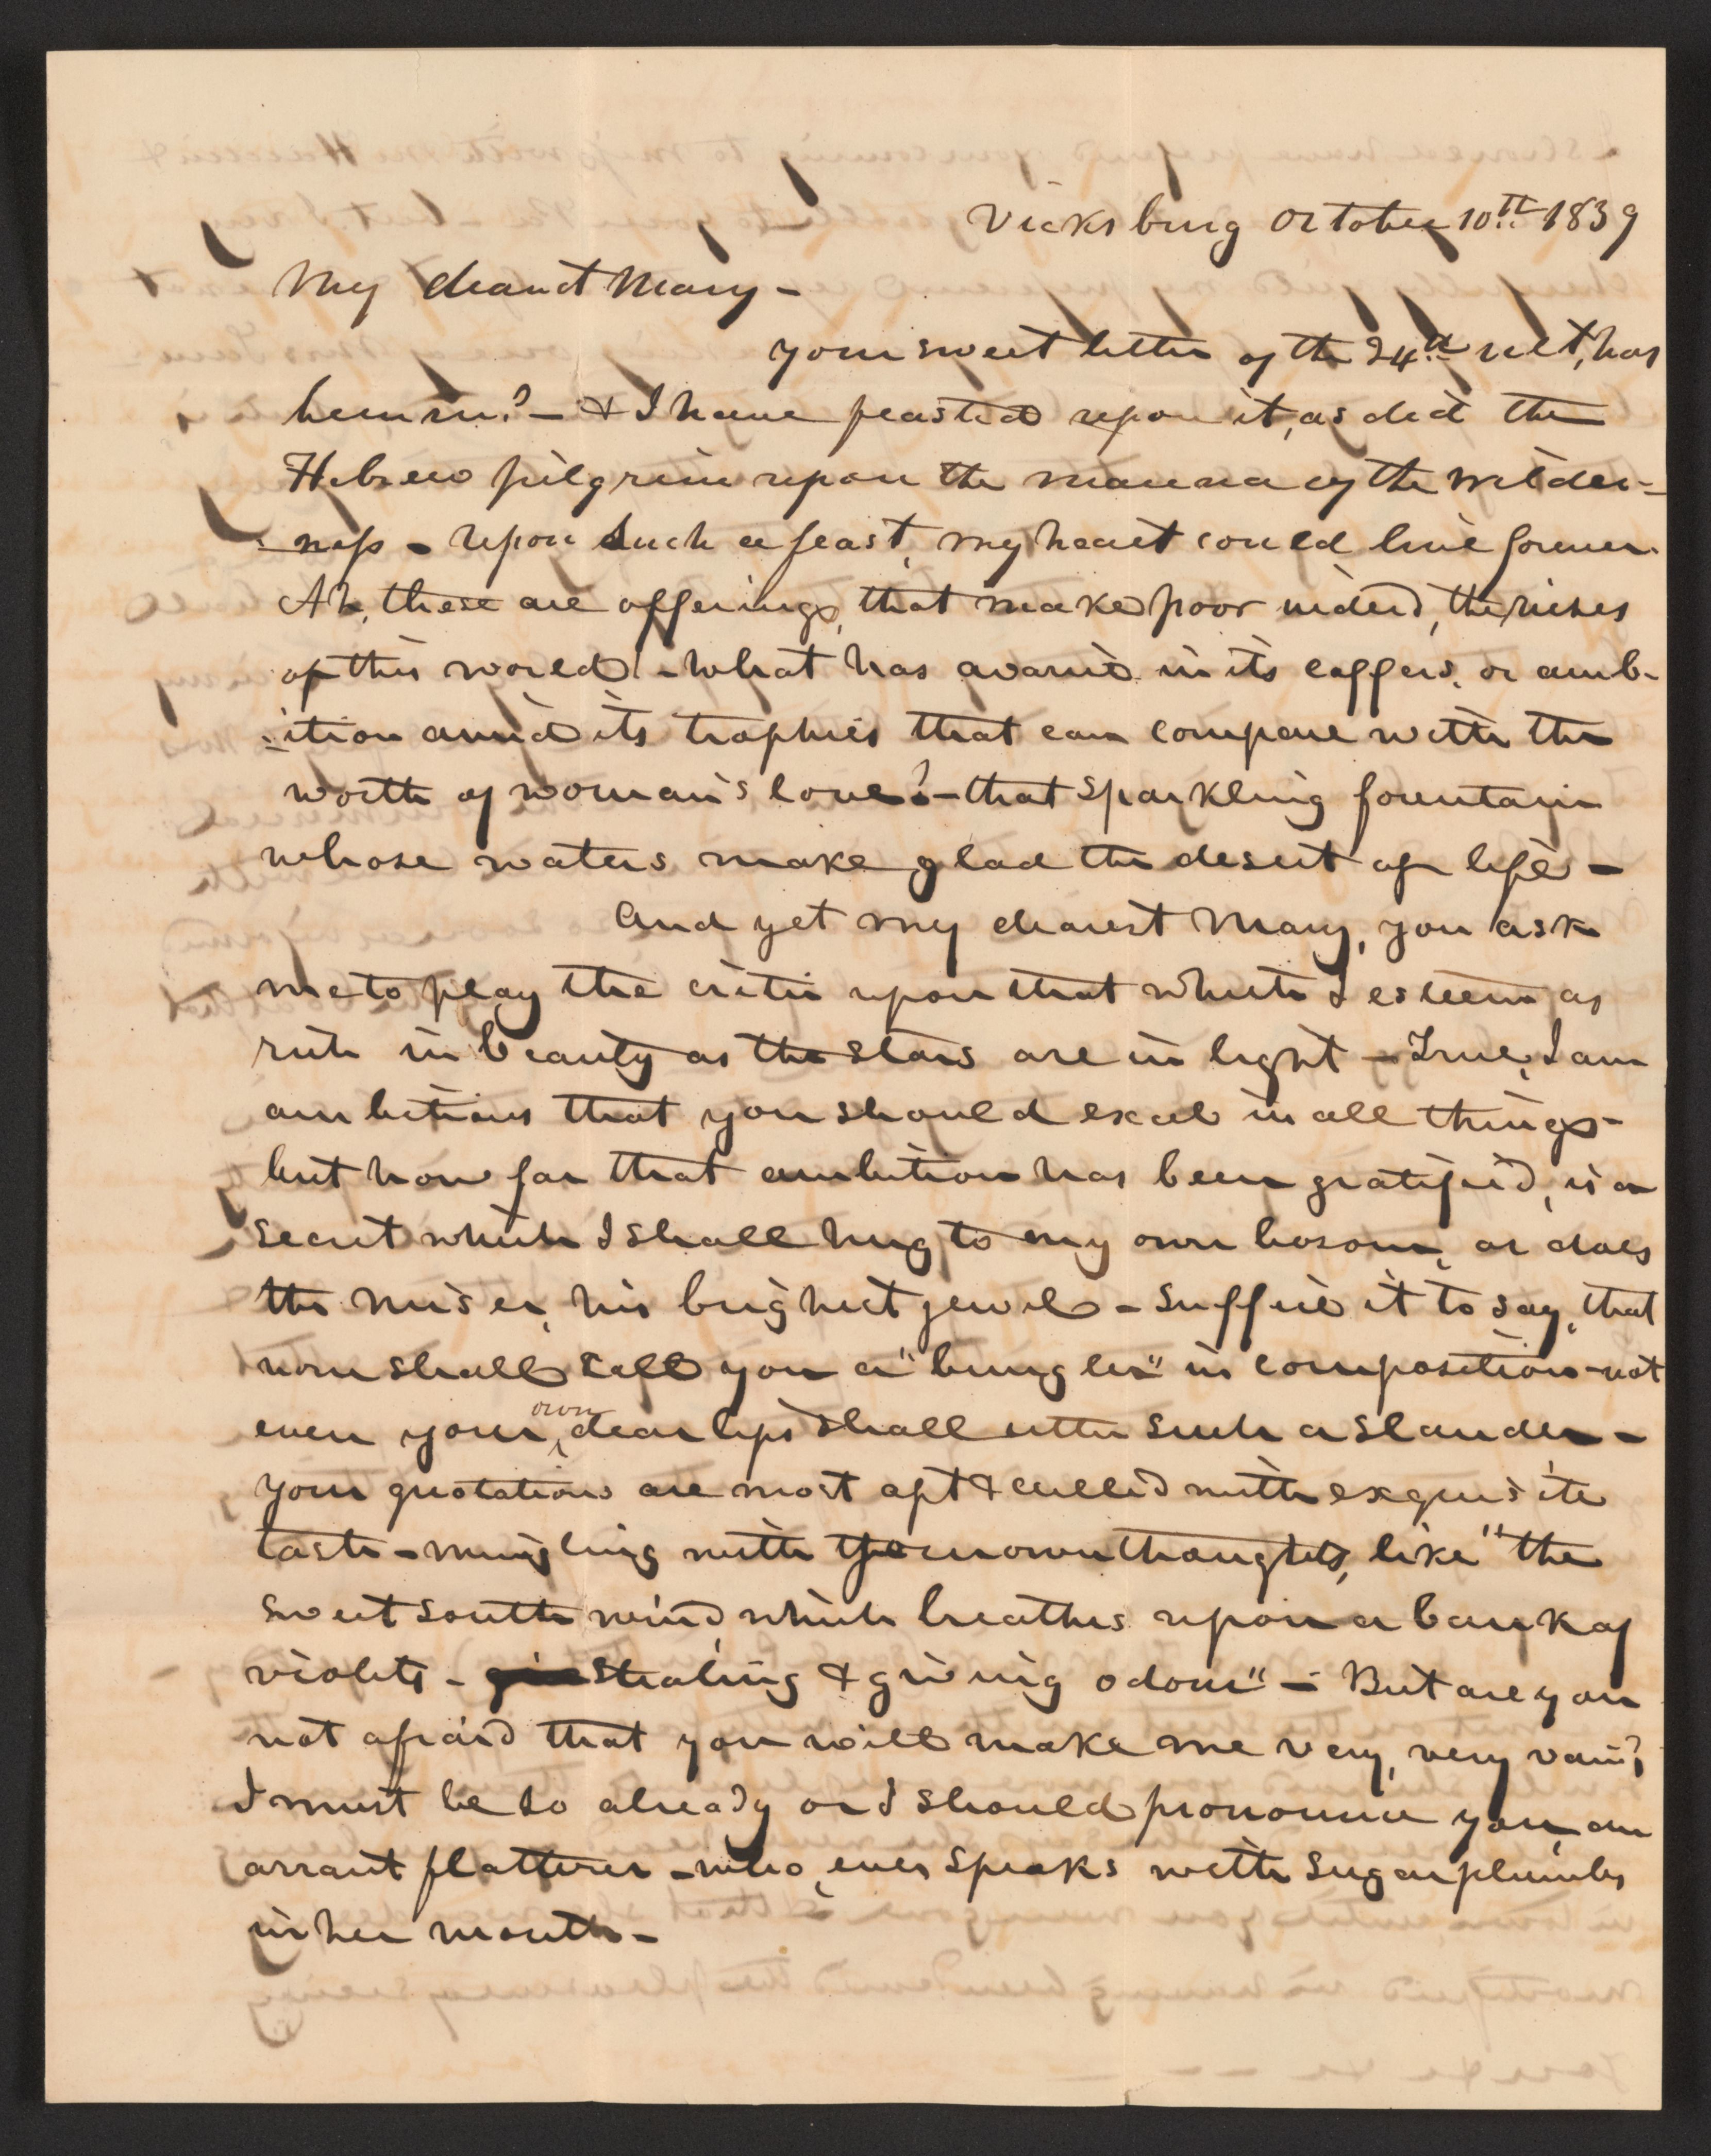 Vicksburg October 10th 1839
My dearest Mary -
your sweet letter of the 24th ult, has
been recd. - & I have feasted upon it, as did the
Hebrew pilgrim upon the manna of the wilder-
-ness - upon such a feast, my heart could live forever.
Ah, these are offerings, that make poor indeed, the riches
of this world! - what has avarice in its coffers, or amb-
-ition amid its trophies that can compare with the
worth of woman's love? - that sparkling fountain
whose waters make glad the desert of life -
And yet my dearest Mary, you ask
me to play the critic upon that which I esteem as
rich in beauty as the stars are in light - True, I am
ambitious that you should excel in all things -
but how far that ambition has been gratified, is a
secret which I shall hug to my own bosom, as does
the miser, his brightest jewel - suffice it to say, that
none shall call you a "bungler" in composition - not
even your own dear lips shall utter such a slander -
your quotations are most apt & culled with exquisite
taste - mingling with your own thoughts, like "the
sweet south wind, which breathes upon a bank of
violets - stealing & giving odour" - But are you
not afraid that you will make me very, very vain?
I must be so already or I should pronounce you, an
arrant flatterer - who, ever speaks with sugarplumbs
in her mouth -